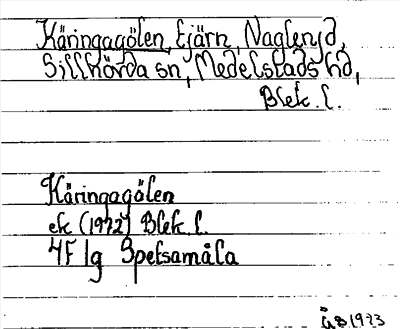 Käringagölen, tjärn, Naglen, d,
Sillhövda sn, Medelstads hd,
Blek. l.
Käringagölen
ek (1972) Blek. l.
4F 1g Spetsamåla
ÅB 1973